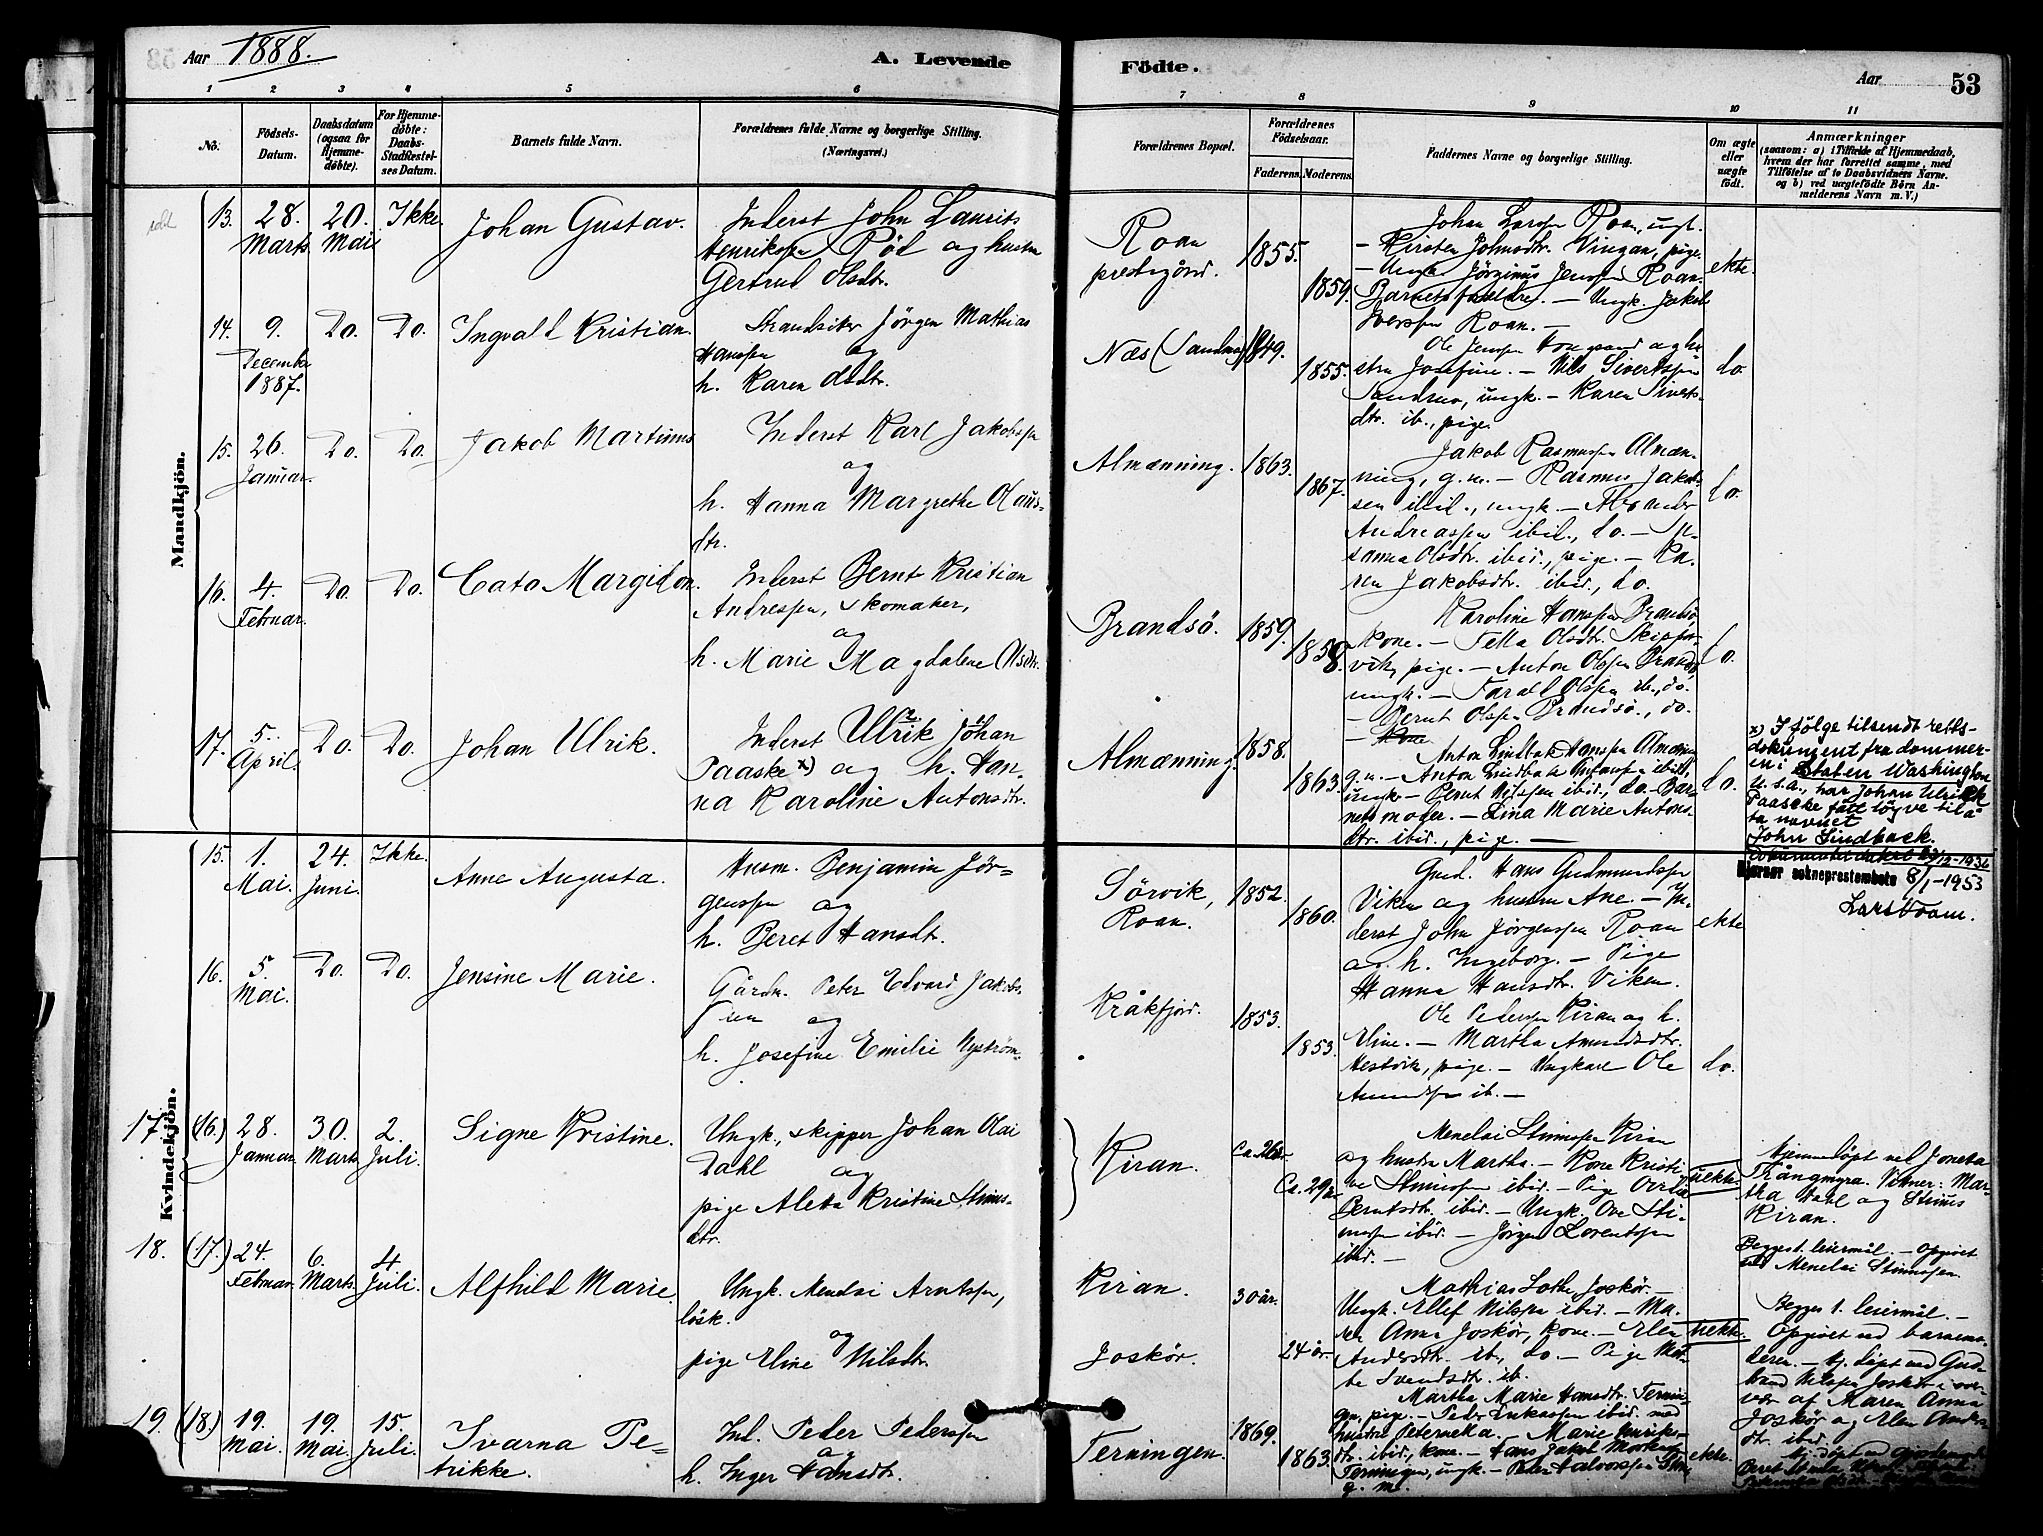 Aar 1888.
A. Levende Födte.
Aar 53
1 2 3 4 5 6 7 8 9 10 11
No.
Födsels-
Datum.
Daabsdatum
(ogsaa for
Hjemme-
döbte).
For Hjemme-
döbte:
Daabs-
Stadfæstel-
ses Datum.
Barnets fulde Navn.
Forældrenes fulde Navne og borgerlige Stilling.
(Næringsvei.)
Forældrenes Bopæl.
Forældrenes
Födselsaar.
Faderens. Moderens.
Faddernes Navne og borgerlige Stilling.
Om ægte
eller
uægte
födt.
Anmærkninger
(saasom: a) i Tilfælde af Hjemmedaab,
hvem der har forrettet samme, med
Tilföielse af to Daabsvidners Navne.
og b) ved uægtefödte Börn An-
melderens Navn m. V.)
Mandkjön.
13. 28. Marts. 20. Mai. Ikke. Johan Gustav.
Inderst John Laurits
Henrikssen Röd og hustru
Gertrud Olsdtr.
Roan
prestegård.
1855.
1859.
Johan Larssen Roan, ungk.
— Kirsten Johnsdtr. Vingan, pige.
— Ungk. Jörginus Jenssen Roan.
Barnets forældre. — Ungk. Jakob
Iverssen Roan. —
ekte.
14. 9. December 1887. Do. Do. Ingvald Kristian.
Strandsitter Jörgen Mathias
Hanssen og
h. Karen Olsdtr.
Næs (Sandnes)
1849.
1855.
Ole Jenssen Hongsand og hu-
stru Josefine. — Nils Sivertssen
Sandnes, ungk. — Karen Siverts-
dtr. ib., pige.
do.
15. 26. Januar. Do. Do. Jakob Martinus
Inderst Karl Jakobssen
og
h. Hanna Margrethe Olaus-
dtr.
Almænning.
1863.
1867.
Jakob Rasmussen Almæn-
ning, g.m. — Rasmus Jakob-
sen ibid., ungk. —
Andreassen ibid., do. — Su-
sanna Olsdtr. ibid., pige. — Ka-
ren Jakobsdtr. ibid., do.
do.
16. 4. Februar. Do. Do. Cato Margidon.
Inderst Bernt Kristian
Andressen, skomaker,
og
h. Marie Magdalene Olsdtr.
Brandsö.
1859.
1858.
Karoline Hanssen Brandsö,
kone. — Olsdtr.
vik, pige. — Anton Olssen Brandsö,
ungk. — Olssen ib., do.
— Bernt Olssen Brandsö, do.
do.
17. 5. April. Do. Do. Johan Ulrik.
Inderst Ulrik Johan
Paaske x) og h. Han-
na Karoline Antonsdtr.
Almænning.
1858.
1863.
Anton Lindbak Hanssen Almænn.
g.m. — Anton Lindbak Antonssen ibid.,
ungk. — Bernt Nilssen ibid., do. — Bar-
nets moder. — Lina Marie Antons-
dtr. ibid., pige. —
do.
x) Ifölge tilsendt retts-
dokument fra dommer-
en i Staten Washington
U.S.A., har Johan Ulrik
Paaske fått löyve til å
ta navnet
John Lindback.
Dokumentet datert 12-1936
sokneprestembete 8/1-1953
Kvindekjön.
15. 1. Mai. 24. Juni. Ikke. Anne Augusta.
Husm. Benjamin Jör-
genssen og
h. Beret Hansdtr.
Sörvik,
Roan.
1852.
1860.
Gmd. Hans Gudmundssen
Viken og hustru Ane. — In-
derst John Jörgenssen Roan
og h. Ingeborg. — Pige
Hanna Hansdtr. Viken.
ekte
16. 5. Mai. Do. Do. Jensine Marie.
Gårdm. Peter Edvard Jakobs-
sen og
h. Josefine Emilie Nyström.
Kråkfjord.
1853.
1853.
Ole Peterssen Kiran og h.
Eline. — Martha Amundsdtr.
Hestvik, pige. — Ungkarl Ole
Amundssen ib. —
do.
17. (16.) 28. Januar. 30. Marts. 2. Juli. Signe Kristine.
Ungk., skipper Johan Olai
Dahl og
pige Aletta Kristine Stinus-
dtr.
Kiran.
Ca. 26 år.
Ca. 29 år.
Menelai Stinussen Kiran
og hustru Martha. — Kone Kristi-
ne Stinussen ibid. — Pige
Berntsdtr. ibid. — Ungk. Ove Sti-
nussen ibid. — Jörgen Lorentssen
ibid. —
uekte.
Hjemmedöpt ved
Vitner: Mar-
tha Dahl og Stinus
Kiran.
Begges 1. leiermål. — Opgivet
ved Menelai Stinussen.
18. (17.) 24. Februar. 6. Marts. 4. Juli. Alfhild Marie.
Ungk. Menelai Arntssen,
lösk.
og
pige Eline Nilsdtr.
Kiran.
Joskör.
30 år.
24 år.
Mathias Joskör. —
Ungk. Ellef Nilssen ibid. — Ma-
ren Anna Joskör, kone. — Elen
Andersdtr. ib., do. — Pige
Svendsdtr. ib.
uekte.
Begges 1. leiermål. —
Opgivet ved barnemo-
deren. — Hj. döpt ved Gud-
brand Nilssen Joskör i over-
vær af Maren Anna
Joskör og Elen Anders-
dtr. ibid.
19. (18.) 19. Mai. 19. Mai. 15. Juli. Ivarna Pe-
trikke.
Ind. Peder Pederssen
og
h. Inger Hansdtr.
Terningen.
1869.
1863.
Martha Marie Hansdtr. Ternin-
gen, pige. — Peder Lukassen ibid. med
hustru Peternelia. — Marie Henriks-
dtr. ibid., kone. — Hans Jakob
Terningen, ungk. — Peter Halvorssen
g.m.
ekte.